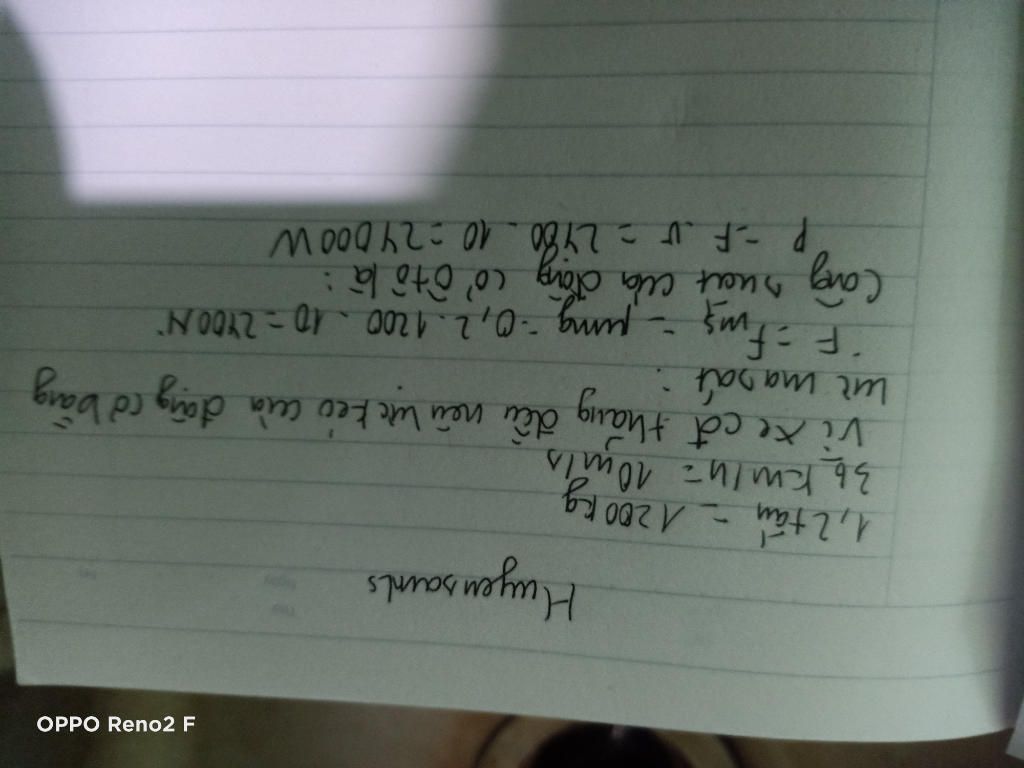 Huyensaunls
1,2 tấn = 1200kg
36 km/h = 10m/s
Vì xe cđ thẳng đều nên lực kéo của động cơ bằng
lực ma sát :
F = Fms = μmg = 0,2 . 1200 . 10 = 2400N
Công suất của động cơ ôtô là :
P = F.v = 2400 . 10 = 24000W
OPPO Reno2 F